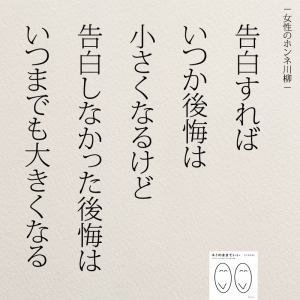 ―女性のホンネ川柳―
告白すれば
いつか後悔は
小さくなるけど
告白しなかった後悔は
いつまでも大きくなる